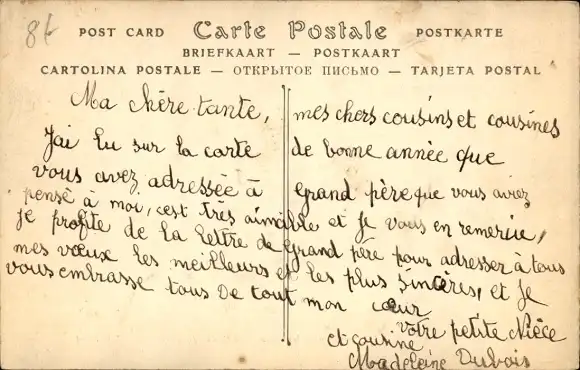 8f
POST CARD Carte Postale POSTKARTE
BRIEFKAART — POSTKAART
CARTOLINA POSTALE — ОТКРЫТОЕ ПИСЬМО — TARJETA POSTAL
Ma chère tante, mes chers cousins et cousines
J'ai lu sur la carte de bonne année que
vous avez adressée à grand père que vous aviez
pensé à moi, c'est très aimable et je vous en remercie,
je profite de la lettre de grand père pour adresser à tous
mes vœux les meilleurs et les plus sincères, et je
vous embrasse tous De tout mon cœur
votre petite Nièce
et cousine
Madeleine Dubois